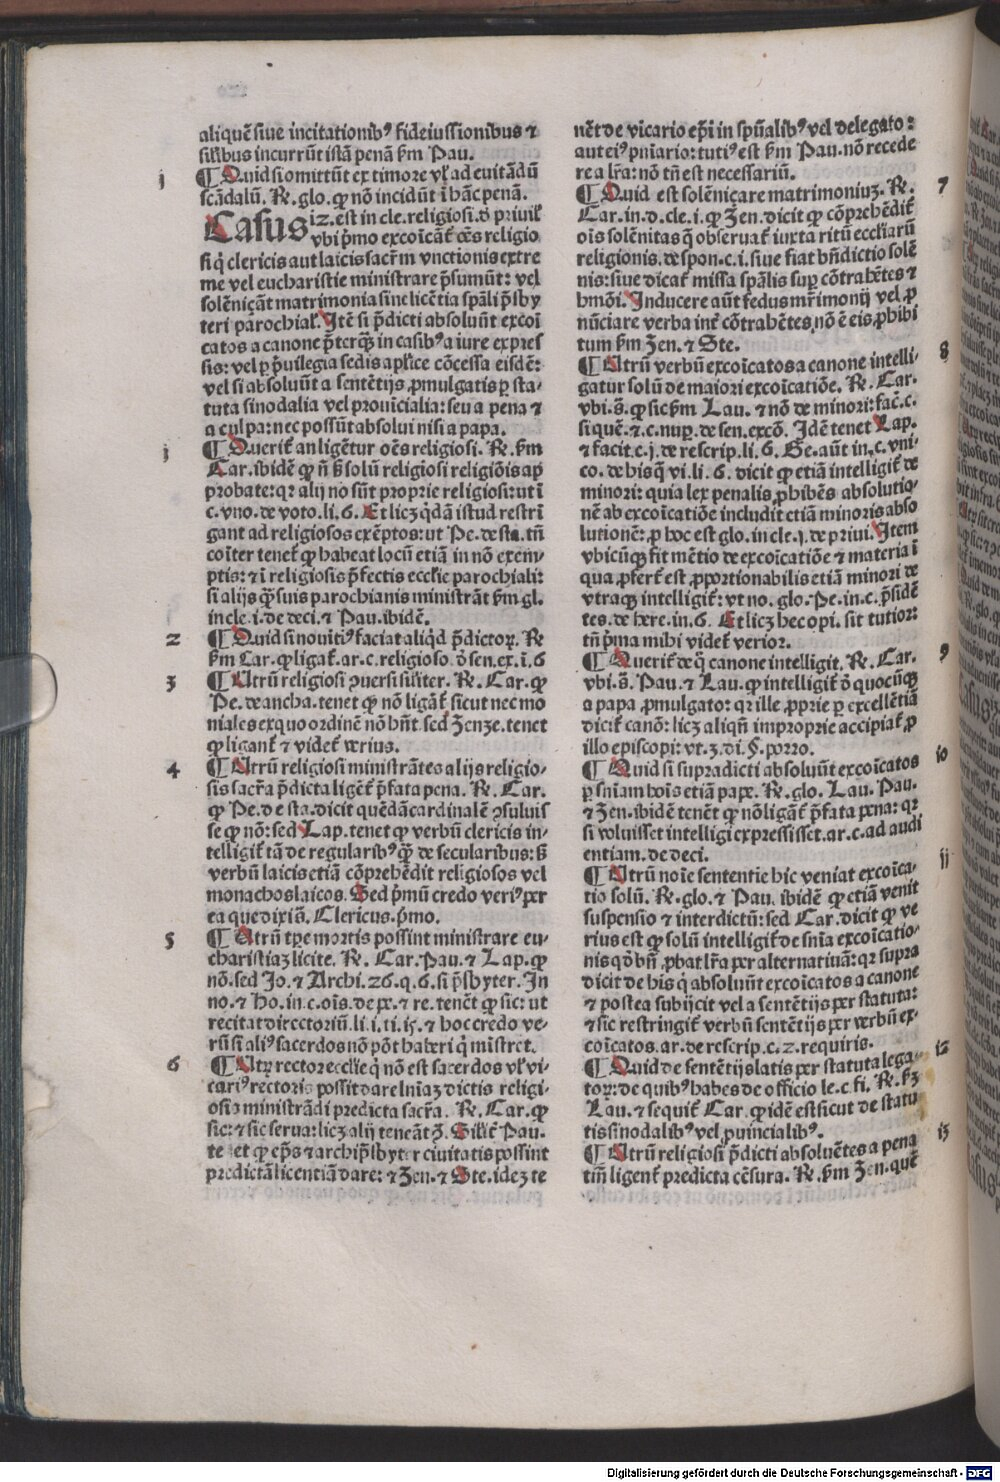 aliquẽ siue incitationibꝰ fideiussionibus ⁊
silibus incurrũt istã penã ẜm Pau.
j
¶ Quid si omittũt ex timore vl̓ ad euitãdũ
scãdalũ. Rͤ. glo. ꝙ nõ incidũt ĩ hãc penã.
Casus iz. est in cle. religiosi. ð priuil̓
vbi p̃mo excoĩcãt̃ oẽs religio
si q̃ clericis aut laicis sacr̃m vnctionis extre
me vel eucharistie ministrare p̃sumũt: vel
solẽniçãt matrimonia sine licẽtia sp̃ali p̃sby
teri parochial̓. Itẽ si p̃dicti absoluũt excoĩ
catos a canone p̃terq̃ꝫ in casibꝰ a iure expres
sis: vel ꝑ p̃uilegia sedis apl̃ice cõcessa eisdẽ:
vel si absoluũt a sentẽtijs ꝓmulgatis ꝑ sta-
tuta sinodalia vel prouĩcialia: seu a pena ⁊
a culpa: nec possũt absolui nisi a papa.
j
¶ Querit̃ an ligẽtur oẽs religiosi. Rͤ. ẜm
Car. ibidẽ ꝙ ñ ẜ solũ religiosi religiõis ap
probate: qꝛ alij no sũt proprie religiosi: ut ĩ
c. vno. de voto. li. 6. Et licꝫ q̃dã istud restrĩ
gant ad religiosos exẽptos: ut Pe. de sta. tñ
coĩter tenet̃ ꝙ habeat locũ etiã in nõ exem-
ptis: ⁊ ĩ religiosis p̃fectis ecclie parochiali:
si alijs q̃ꝫ suis parochianis ministrãt ẜm gl.
in cle. i. de deci. ⁊ Pau. ibidẽ.
2
¶ Quid si nouitiꝰ faciat aliq̃d p̃dictoꝝ. Rͤ
ẜm Car. ꝙ ligat̃. ar. c. religioso. ð sen. ex. ĩ. 6
3
¶ Utrũ religiosi ꝯuersi sil̃iter. Rͤ. Car. ꝙ
Pe. de ancha. tenet ꝙ nõ ligãt̃ sicut nec mo
niales ex quo ordinẽ nõ hñt sed Zenze. tenet
ꝙ ligant̃ ⁊ videt̃ verius.
4
¶ Utrũ religiosi ministrãtes alijs religio-
sis sacr̃a p̃dicta ligẽt̃ p̃fata pena. Rͤ. Car.
ꝙ Pe. de sta. dicit quẽdã cardinalẽ ꝯsuluis
se ꝙ nõ: sed Lap. tenet ꝙ verbũ clericis in-
telligit̃ tã de regularibꝰ q̃ꝫ de secularibus: ẜ
verbũ laicis etiã cõprehẽdit religiosos vel
monachos laicos. Sed p̃mũ credo veriꝰ per
ea que dixi s̃. Clericus. p̃mo.
5
¶ Utrũ tp̃e mortis possint ministrare eu-
charistiaꝫ licite. Rͤ. Car. Pau. ⁊ Lap. ꝙ
nõ. sed Jo. ⁊ Archi. 26. q. 6. si p̃sbyter. In
no. ⁊ Ho. in. c. oĩs. de pe. ⁊ re. tenẽt ꝙ sic: ut
recitat directoriũ. li. i. ti. i5. ⁊ hoc credo ve-
rũ si aliꝰ sacerdos nõ põt haberi q̃ mĩstret.
6
¶ Utꝝ rector ecclie q̃ nõ est sacerdos vl̓ vi-
cariꝰ rectoris possit dare lñiaꝫ dictis religi-
osis ministrãdi predicta sacr̃a. Rͤ. Car. ꝙ
sic: ⁊ sic serua: licꝫ alij teneãt ꝫ. Silit̃ Pau.
te et ꝙ ep̃s ⁊ archip̃sbyter ciuitatis possint
predictã licentiã dare: ⁊ Zen. ⁊ Ste. idez te
nẽt de vicario ep̃i in sp̃ualibꝰ vel delegato:
aut eiꝰ pniario: tutiꝰ est ẜm Pau. nõ recede
re a lr̃a: nõ tñ est necessariũ.
7
¶ Quid est solẽniçare matrimoniuꝫ. Rͤ.
Car. in. d. cle. i. ꝙ Zen. dicit ꝙ cõprehẽdit̃
oĩs solẽnitas q̃ obseruat̃ iuxta ritũ eccliarũ
religionis. de spon. c. i. siue fiat bñdictio solẽ
nis: siue dicat̃ missa sp̃alis suꝑ cõtrahẽtes ⁊
hmõi. Inducere aũt fedus mr̃imonij vel ꝓ
nũciare verba int̃ cõtrahẽtes, nõ ẽ eis ꝓhibi
tum ẜm Zen. ⁊ Ste.
8
¶ Utrũ verbũ excoĩcatos a canone intelli-
gatur solũ de maiori excoĩcatiõe. Rͤ. Car.
vbi. s̃. ꝙ sic ẜm Lau. ⁊ nõ de minori: fac̃. c.
si quẽ: ⁊. c. nuꝑ. de sen. excõ. Idẽ tenet Lap.
⁊ facit. c. j. de rescrip. li. 6. Ge. aũt in. c. vni-
co. de his q̃ vi. li. 6. dicit ꝙ etiã intelligit̃ de
minori: quia lex penalis ꝓhibẽs absolutio-
nẽ ab excoĩcatiõe includit etiã minoris abso
lutionẽ: ꝓ hoc est glo. in cle. j. de priui. Item
vbicũqꝫ fit mẽtio de excoĩcatiõe ⁊ materia ĩ
qua ꝓfert̃ est ꝓportionabilis etiã minori de
vtraqꝫ intelligit̃: vt no. glo. Pe. in. c. p̃sidẽ
tes. de here. in. 6. Et licꝫ hec opi. sit tutior:
tñ p̃ma mihi videt̃ verior.
9
¶ Querit̃ de q̃ canone intelligit. Rͤ. Car.
vbi. s̃. Pau. ⁊ Lau. ꝙ intelligit̃ ð quocũqꝫ
a papa ꝓmulgato: qꝛ ille ꝓprie ꝑ excellẽtiã
dicit̃ canõ: licꝫ aliqñ improprie accipiat̃ ꝓ
illo episcopi: vt. 3. di. §. porro.
i0
¶ Quid si supradicti absoluũt excoĩcatos
ꝑ sniam hoĩs etiã pape. Rͤ. glo. Lau. Pau.
⁊ Zen. ibidẽ tenẽt ꝙ nõ ligãt̃ p̃fata pena: qꝛ
si voluisset intelligi expressisset. ar. c. ad audi
entiam. de deci.
jj
¶ Utrũ noĩe sententie hic veniat excoĩca-
tio solũ. Rͤ. glo. ⁊ Pau. ibidẽ ꝙ etiã venit
suspensio ⁊ interdictũ: sed Car. dicit ꝙ ve
rius est ꝙ solũ intelligit̃ de snĩa excoĩcatio-
nis qð bñ ꝓbat lr̃a per alternatiuã: qꝛ supra
dicit de his q̃ absoluũt excoĩcatos a canone
⁊ postea subijcit vel a sentẽtijs per statuta:
⁊ sic restringit̃ verbũ sentẽtijs per verbũ ex-
coĩcatos. ar. de rescrip. c. 2. requiris.
i2
¶ Quid de sentẽtijs latis per statuta lega-
toꝝ: de quibꝰ habes de officio le. c. fi. Rͤ. ẜꝫ
Lau. ⁊ sequit̃ Car. ꝙ idẽ est sicut de statu
tis sinodalibꝰ vel ꝓuincialibꝰ.
i3
¶ Utrũ religiosi p̃dicti absoluẽtes a pena
tm̃ ligent̃ predicta cẽsura. Rͤ. ẜm Zen. quẽ
Digitalisierung gefördert durch die Deutsche Forschungsgemeinschaft - DFG